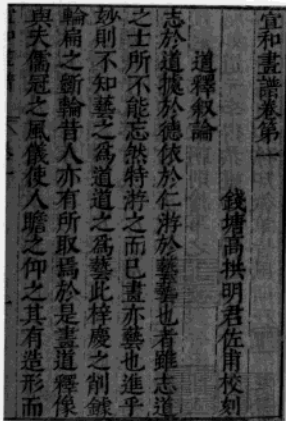 宣和畫譜卷第一
錢塘高拱明君佐甫校刻
道釋叙論
志於道據於德依於仁游於藝藝也者雖志道
之士所不能忘然特游之而已畫亦藝也進乎
妙則不知藝之為道道之為藝此梓慶之削鐻
輪扁之斲輪昔人亦有所取焉於是畫道釋像
與夫儒冠之風儀使人瞻之仰之其有造形而